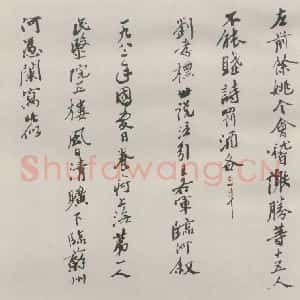 右前餘姚令會稽謝勝等十五人
不能賦詩罰酒各三斗
劉孝標世說注引王右軍臨河敘
一九八二年國慶日養疴上海第一人
民醫院上樓風日清曠下臨蘇州
河憑闌寫此
Shufawang.CN